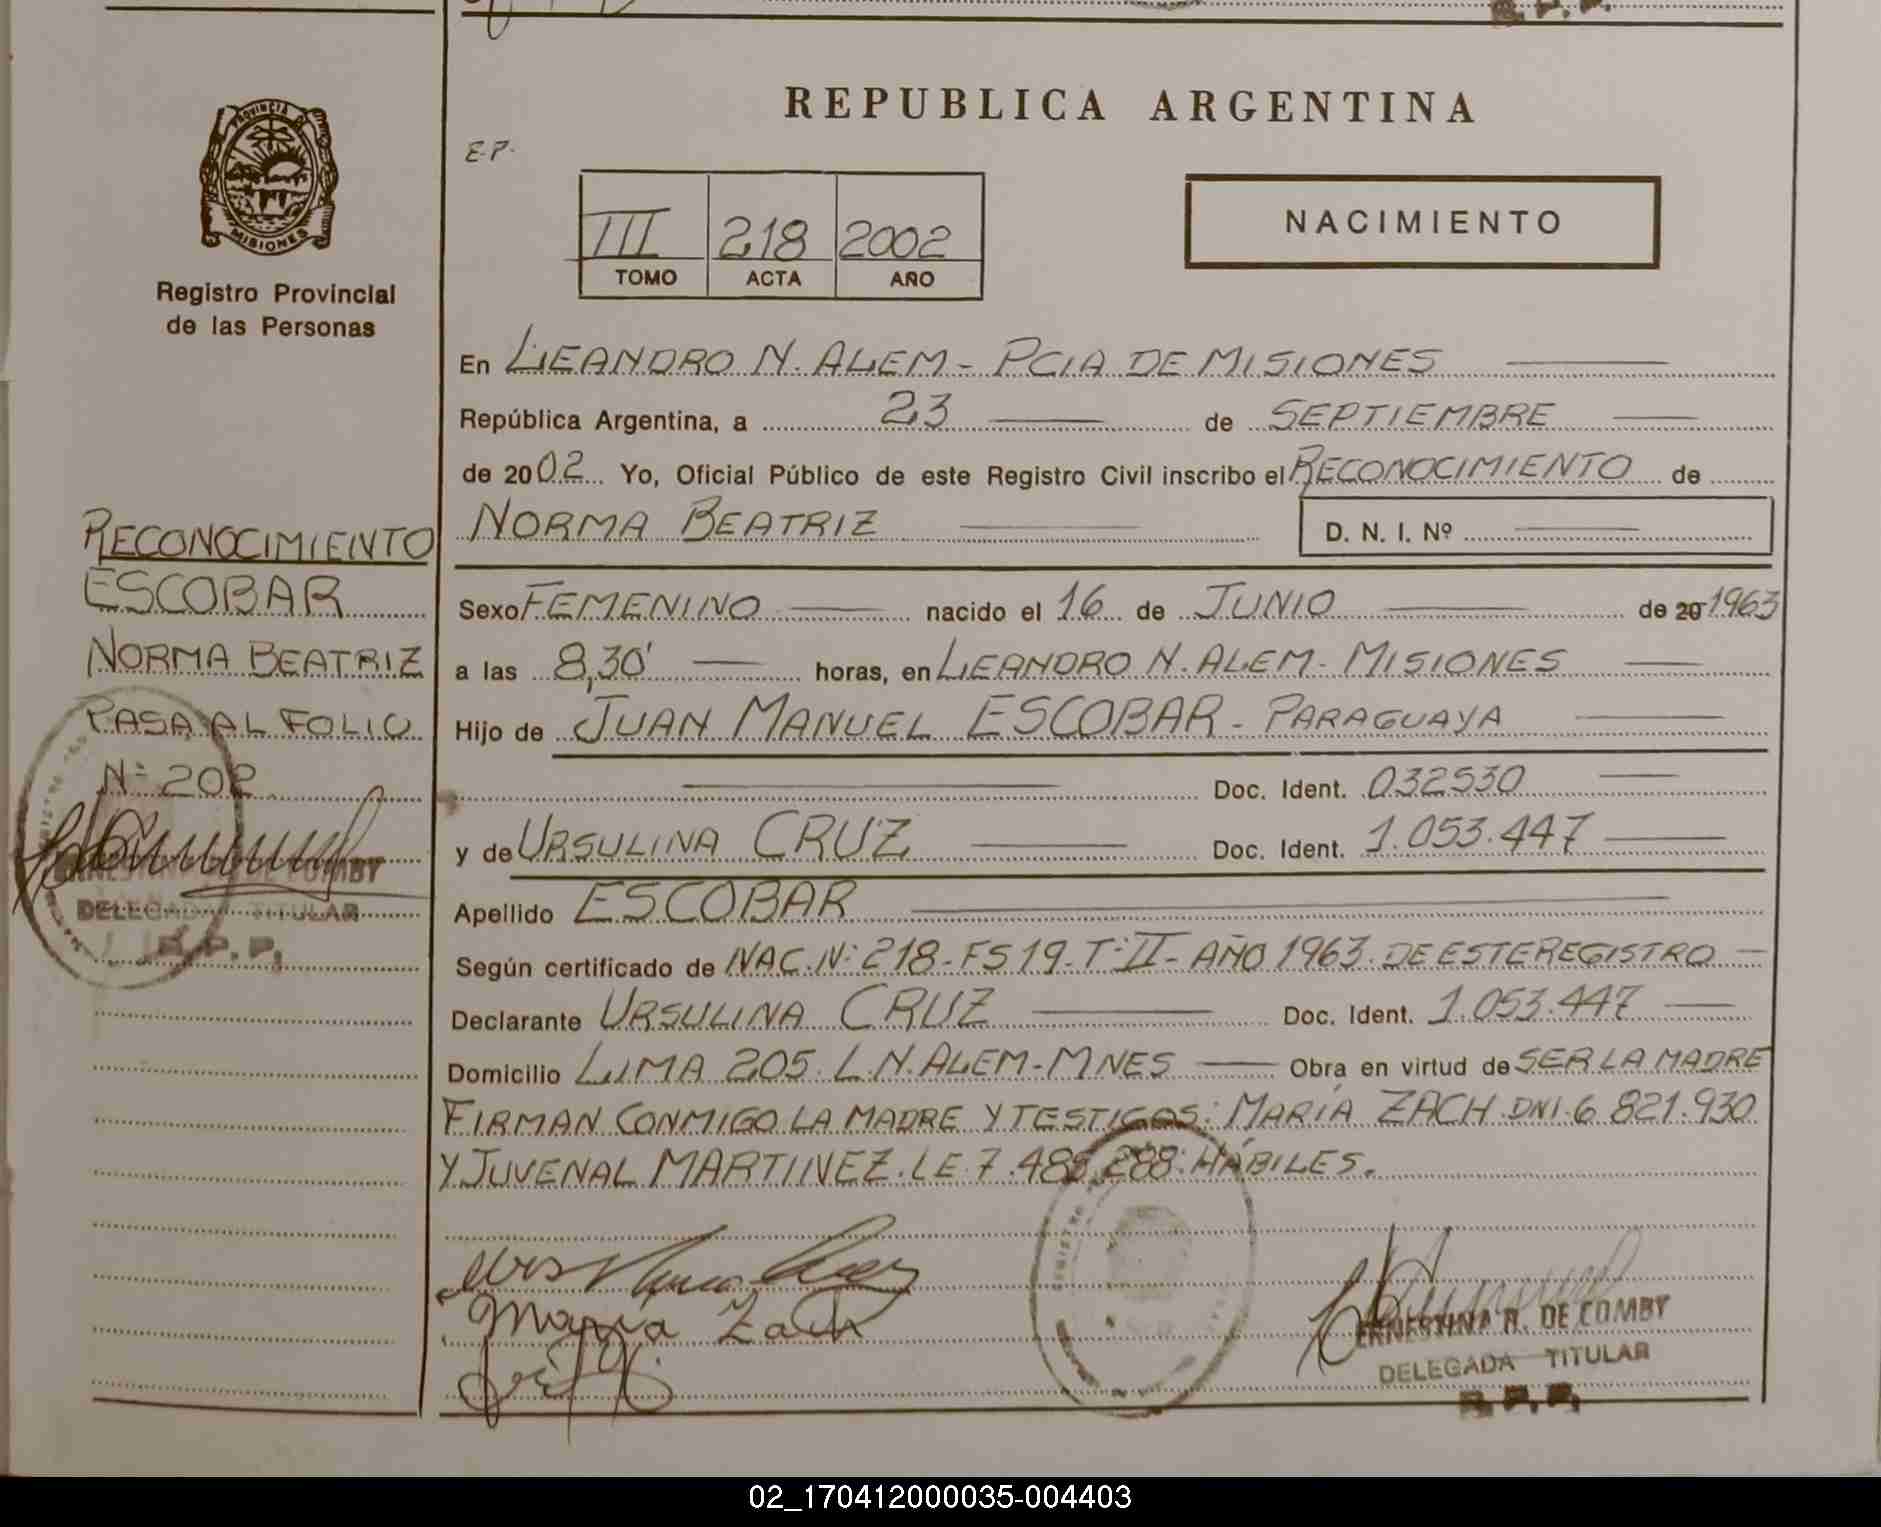 PROVINCIA DE
MISIONES
Registro Provincial
de las Personas
RECONOCIMIENTO
ESCOBAR
NORMA BEATRIZ
PASA AL FOLIO
Nº 202
DE COMBY
DELEGADA TITULAR
R. P. P.
REPUBLICA ARGENTINA
E.P.
III 218 2002
TOMO ACTA AÑO
NACIMIENTO
En LEANDRO N. ALEM - PCIA DE MISIONES
República Argentina, a 23 de SEPTIEMBRE
de 2002 Yo, Oficial Público de este Registro Civil inscribo el RECONOCIMIENTO de
NORMA BEATRIZ D. N. I. Nº
Sexo FEMENINO nacido el 16 de JUNIO de 20 1963
a las 8,30' horas, en LEANDRO N. ALEM - MISIONES
Hijo de JUAN MANUEL ESCOBAR - PARAGUAYA
Doc. Ident. 032530
y de URSULINA CRUZ Doc. Ident. 1.053.447
Apellido ESCOBAR
Según certificado de NAC. Nº 218 - FS 19 - Tº II - AÑO 1963. DE ESTE REGISTRO
Declarante URSULINA CRUZ Doc. Ident. 1.053.447
Domicilio LIMA 205. L.N. ALEM - MNES Obra en virtud de SER LA MADRE
FIRMAN CONMIGO LA MADRE Y TESTIGOS: MARÍA ZACH. DNI. 6.821.930
Y JUVENAL MARTINEZ. LE. 7.485.288. HÁBILES.
María Zach
ERNESTINA R. DE COMBY
DELEGADA TITULAR
R. P. P.
02_170412000035-004403